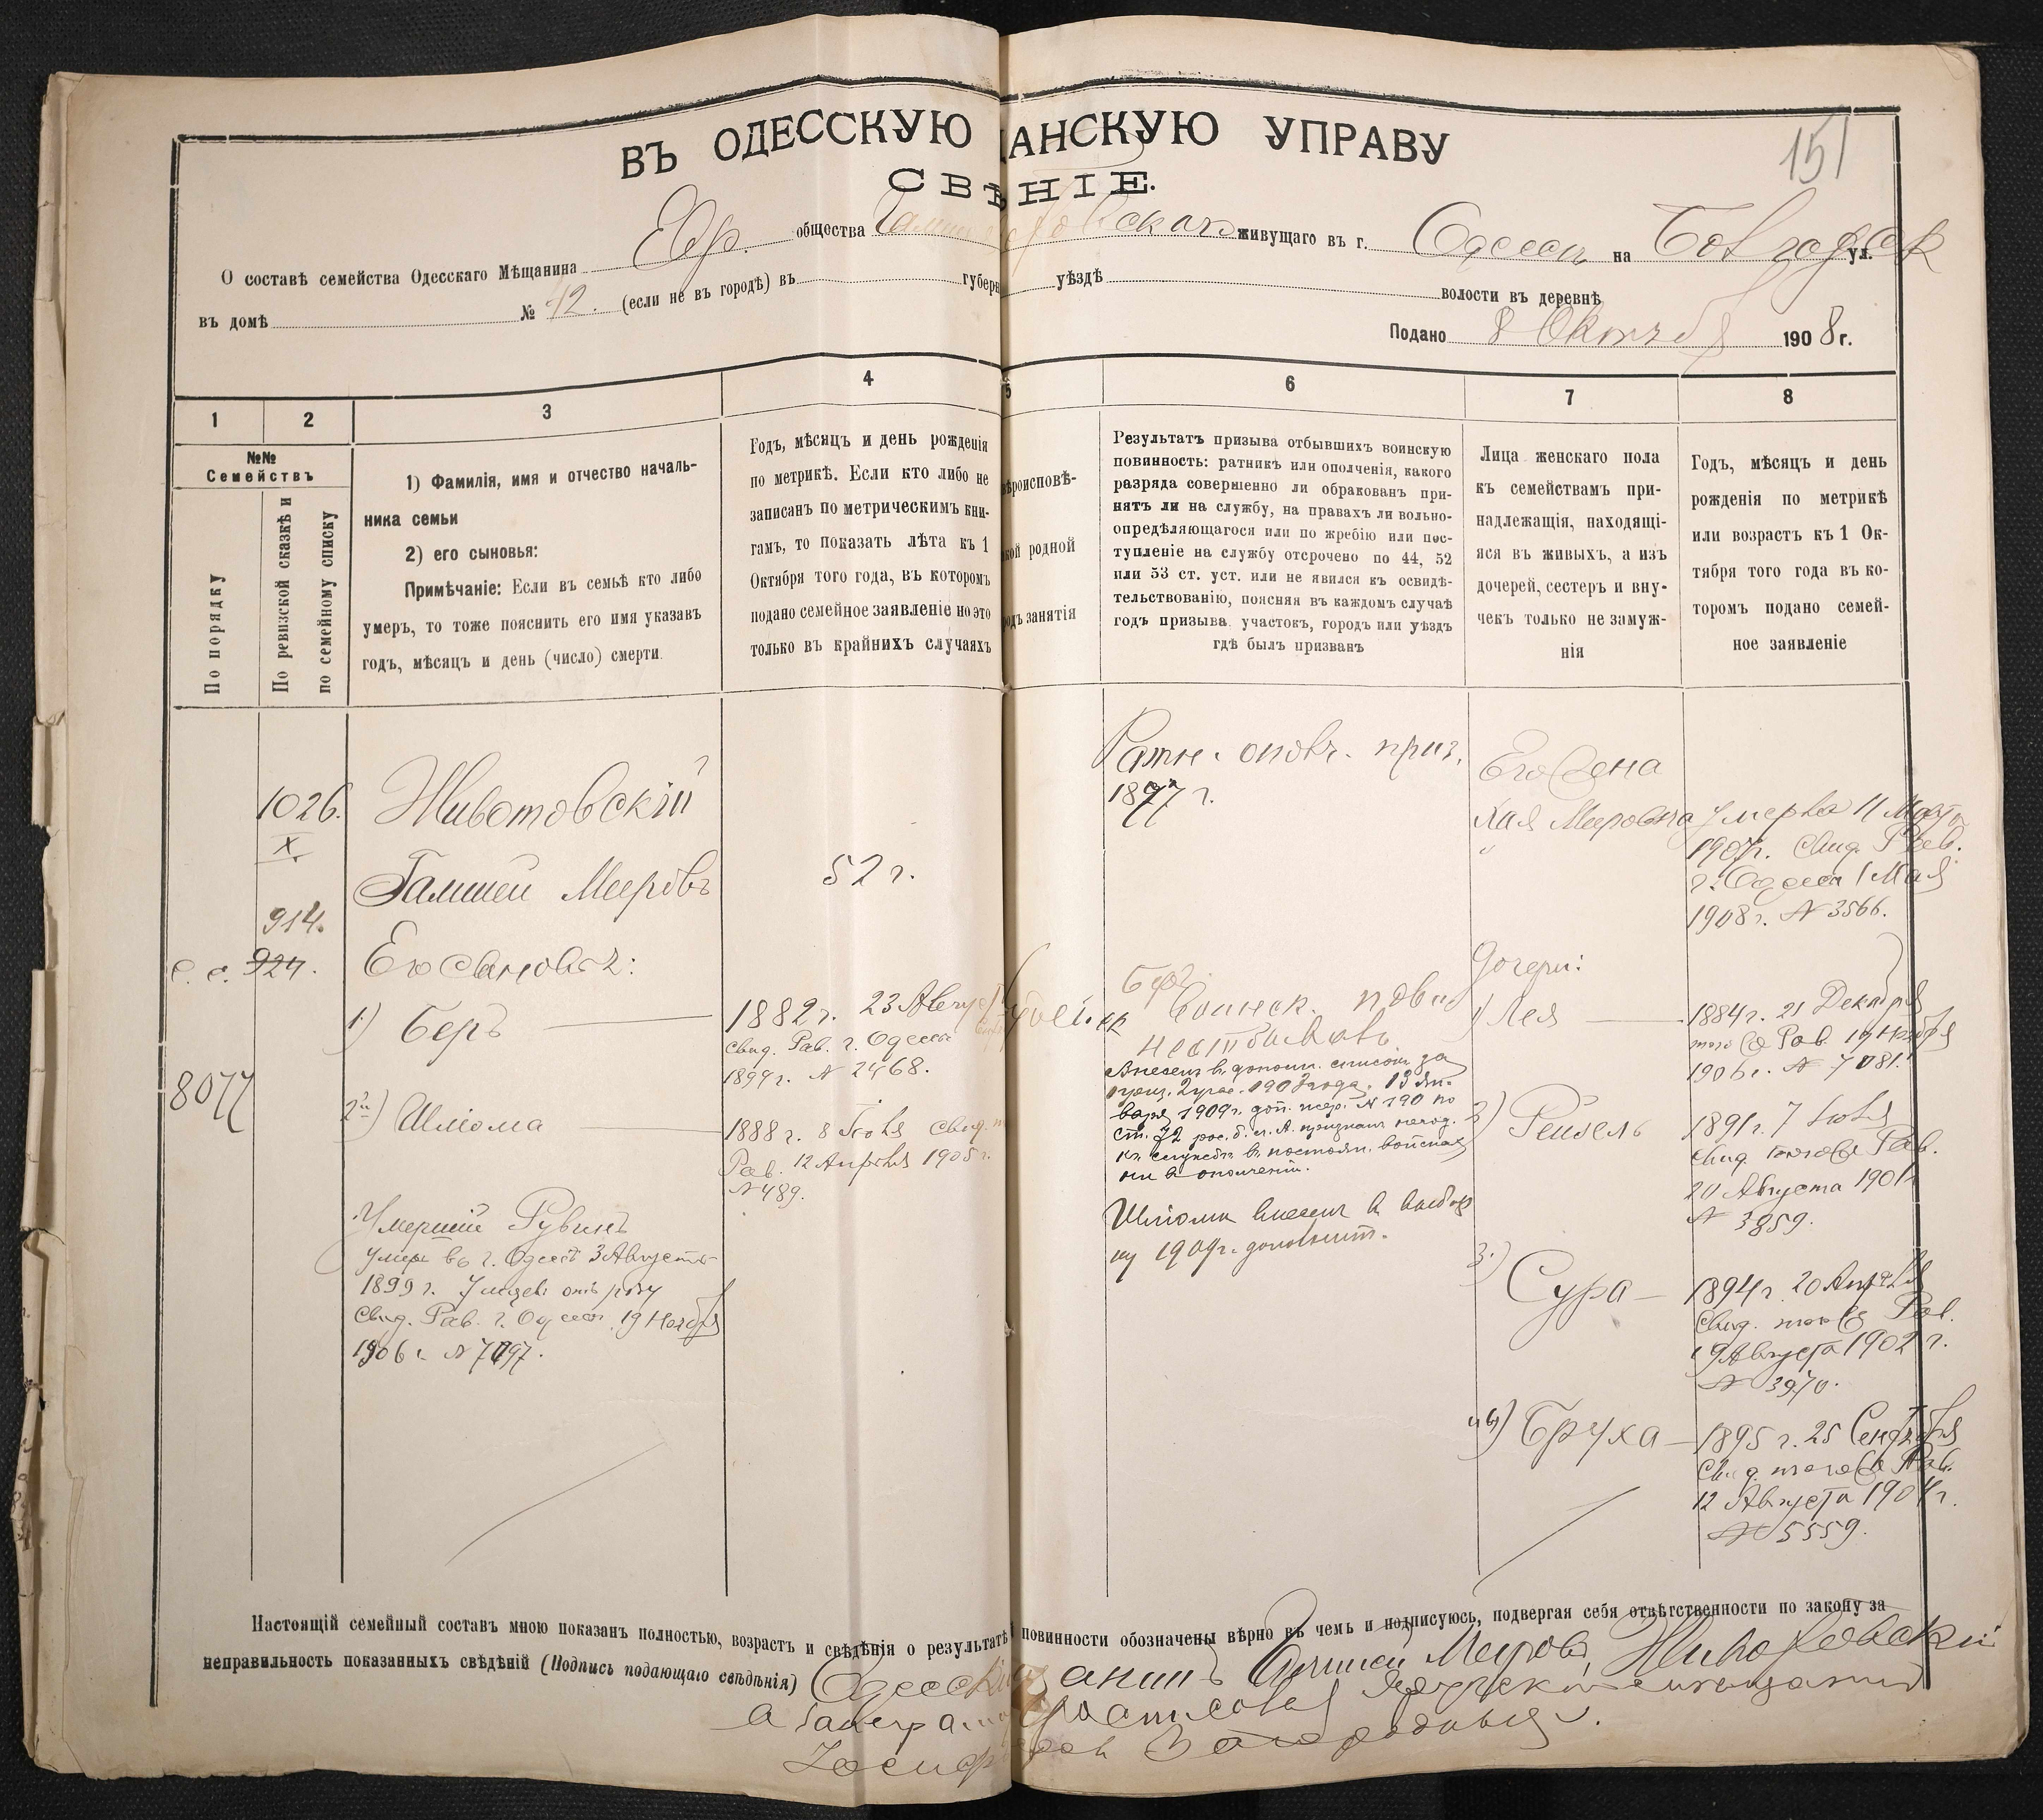 151
ВЪ ОДЕССКУЮ АНСКУЮ УПРАВУ
СВѢНІЕ.
О составѣ семейства Одесскаго Мѣщанина Евр. общества живущаго въ г. Одессѣ на ул.
въ домѣ № 42. (если не въ городѣ) въ губерн уѣздѣ волости въ деревнѣ
Подано 8 Октяб 1908 г.
1 2 3 4 5 6 7 8
№№
Семействъ
По порядку
По ревизской сказкѣ и
по семейному списку
1) Фамилія, имя и отчество началь-
ника семьи
2) его сыновья:
Примѣчаніе: Если въ семьѣ кто либо
умеръ, то тоже пояснить его имя указавъ
годъ, мѣсяцъ и день (число) смерти.
Годъ, мѣсяцъ и день рожденія
по метрикѣ. Если кто либо не
записанъ по метрическимъ кни-
гамъ, то показать лѣта къ 1
Октября того года, въ которомъ
подано семейное заявленіе но это
только въ крайнихъ случаяхъ
ѣроисповѣ-
кой родной
одъ занятія
Результатъ призыва отбывшихъ воинскую
повинность: ратникъ или ополченія, какого
разряда совершенно ли обракованъ при-
нятъ ли на службу, на правахъ ли вольно-
опредѣляющагося или по жребію или пос-
тупленіе на службу отсрочено по 44, 52
или 53 ст. уст. или не явился къ освидѣ-
тельствованію, поясняя въ каждомъ случаѣ
годъ призыва участокъ, городъ или уѣздъ
гдѣ былъ призванъ
Лица женскаго пола
къ семействамъ при-
надлежащія, находящі-
яся въ живыхъ, а изъ
дочерей, сестеръ и вну-
чекъ только не замуж-
нія
Годъ, мѣсяцъ и день
рожденія по метрикѣ
или возрастъ къ 1 Ок-
тября того года въ ко-
торомъ подано семей-
ное заявленіе
1026.
X
914.
с. с. 924.
8077
Животовскій
Гамшей Мееровъ
Его сыновья:
1) Беръ
2й) Шліома
Умершій Рувинъ
умеръ въ г. Одессѣ 3 Августа
1899 г.
Свид. Рав. г. Одессы 19 Ноября
1906 г. № 7097.
52 г.
1882 г. 23 Август
Свид. Рав. г. Одессы
1899 г. № 2468.
1888 г. 8 Іюля Свид.
Рав. 12 Апрѣля 1905 г.
№ 489.
Ратн. ополч. приз.
1877 г.
Воинск. повин
не отбывалъ
Внесенъ въ дополн. списокъ за
1903 года. 13 Ян-
варя 1909 г. доп. жер. № 190 по
къ службѣ въ постоян. войскахъ
ни въ ополченіи.
Шліома внесенъ в
1909 г. дополнит.
Его Жена
Хая Мееровна
Дочери:
1) Лея
2) Рейзель
3.) Сура
4й) Бруха
Умерла 11 Марта
1907 г. Свид. Рав.
г. Одессы 1 Мая
1908 г. № 3566.
1884 г. 21 Декабря
того же Рав. 19 Ноября
1906 г. № 7081.
1891 г. 7 Іюля
Свид. того же Рав.
20 Августа 1901
№ 3859.
1894 г. 20 Апрѣля
Свид. того же Рав.
9 Августа 1902 г.
№ 3970.
1895 г. 25 Сентября
Свид. того же Рав.
12 Августа 1904 г.
№ 5559.
Настоящій семейный составъ мною показанъ полностью, возрастъ и свѣдѣнія о результатѣ повинности обозначены вѣрно въ чемъ и подписуюсь, подвергая себя отвѣтственности по закону за
неправильность показанныхъ свѣдѣній (Подпись подающаго свѣдѣнія) Одесскій анинъ Гамшей Мееровъ Животовскій